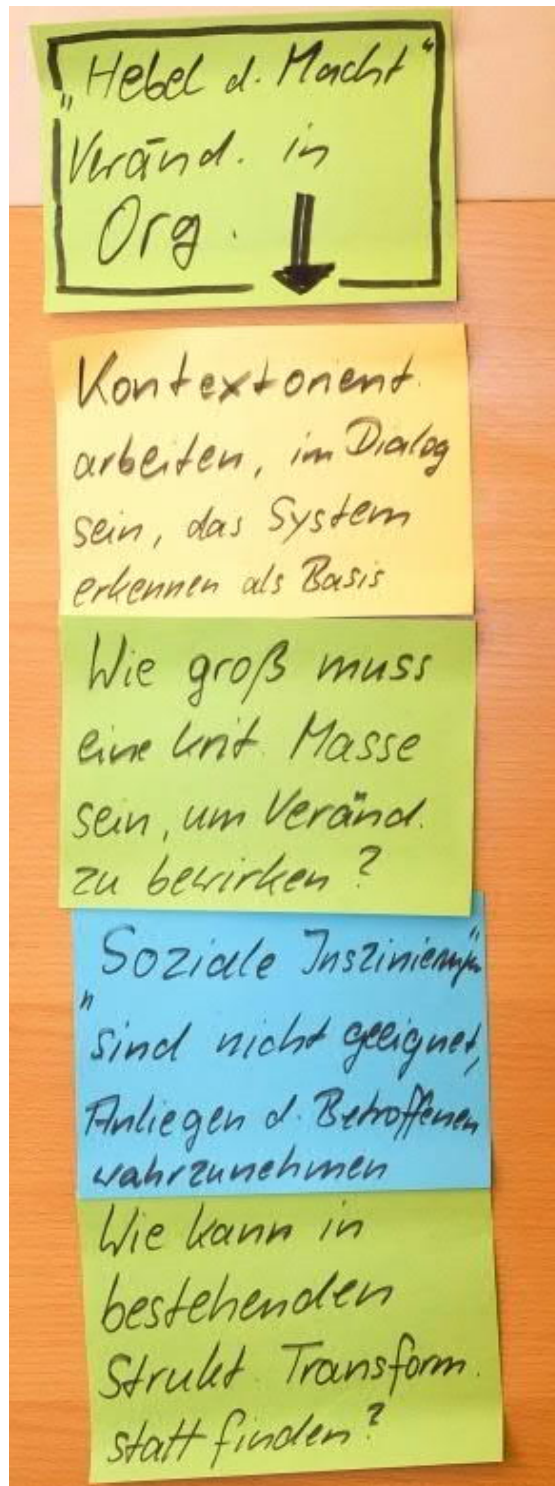 „Hebel d. Macht“
Veränd. in
Org.
Kontextorient.
arbeiten, im Dialog
sein, das System
erkennen als Basis
Wie groß muss
eine krit. Masse
sein, um Veränd.
zu bewirken?
„Soziale Inszinierungen“
sind nicht geeignet,
Anliegen d. Betroffenen
wahrzunehmen
Wie kann in
bestehenden
Strukt. Transform.
statt finden?